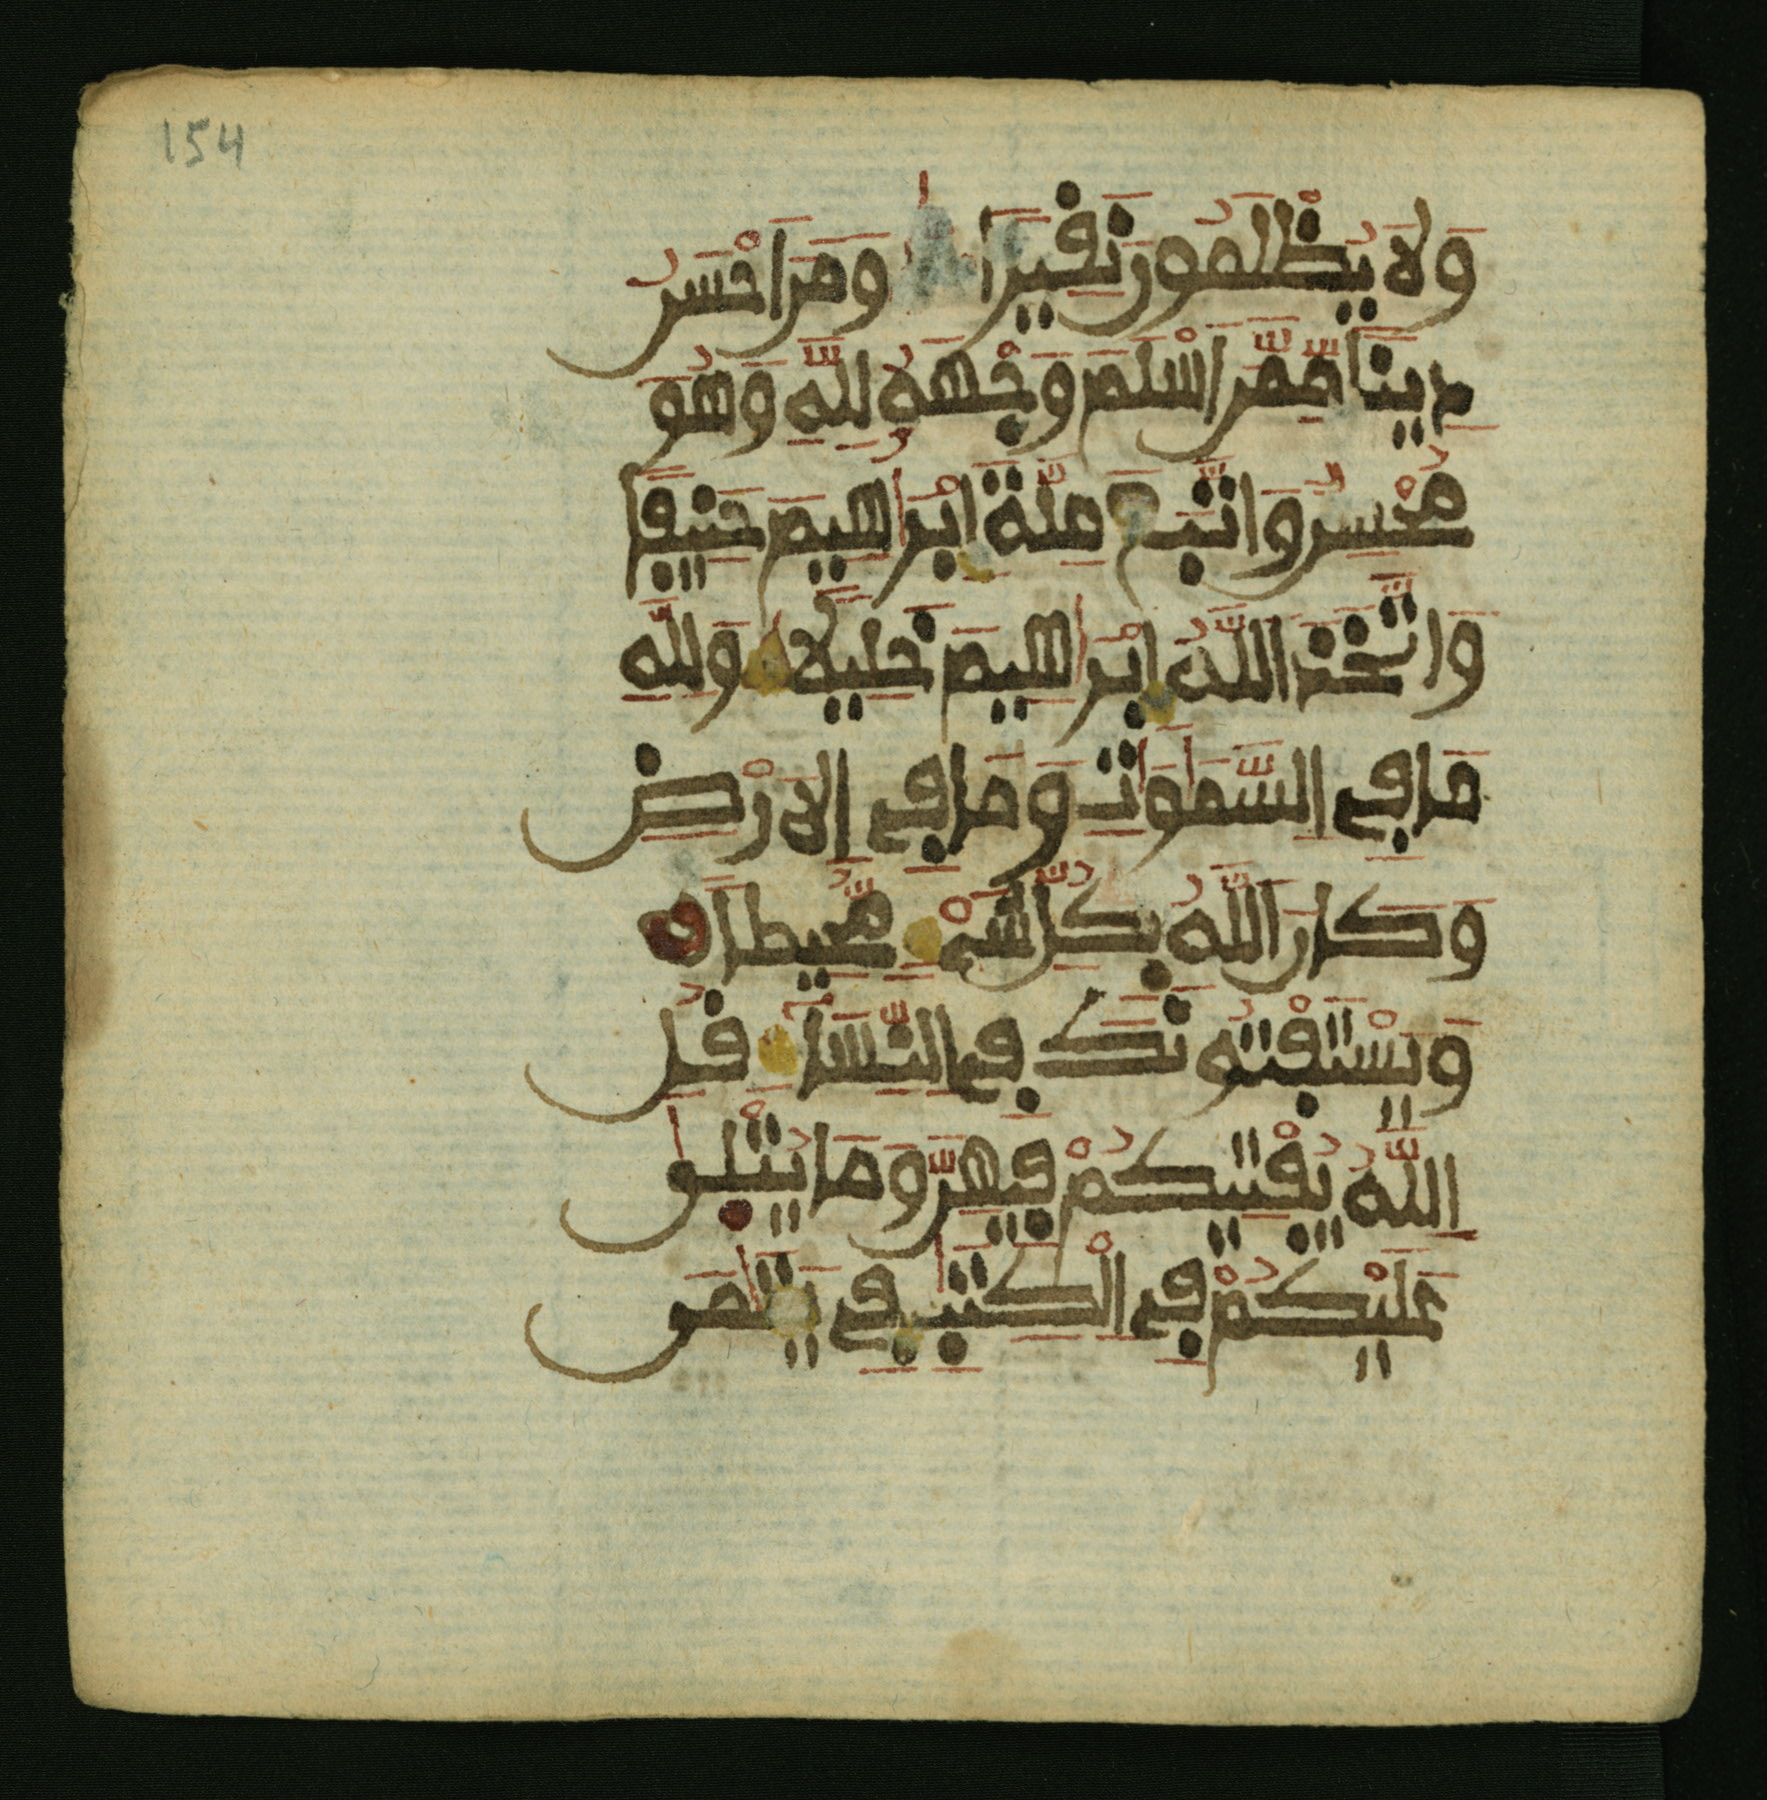 154
وَلَا يُظْلَمُونَ نَقِيرًا وَمَنَ احْسَنُ
دِينًا مِّمَّنَ اسْلَمَ وَجْهَهُ لِلَّهِ وَهُوَ
مُحْسِنٌ وَاتَّبَعَ مِلَّةَ إبْرَاهِيمَ حَنِيفًا
وَاتَّخَذَ اللَّهُ إبْرَاهِيمَ خَلِيلًا وَلِلَّهِ
مَا فِي السَّمَوَاتِ وَمَا فِي الَارْضِ
وَكَانَ اللَّهُ بِكُلِّ شَيْءٍ مُّحِيطًا
وَيَسْتَفْتُونَكَ فِي النِّسَاءِ قُلِ
اللَّهُ يُفْتِيكُمْ فِيهِنَّ وَمَا يُتْلَى
عَلَيْكُمْ فِي الْكِتَبِ فِي يَتَمَى